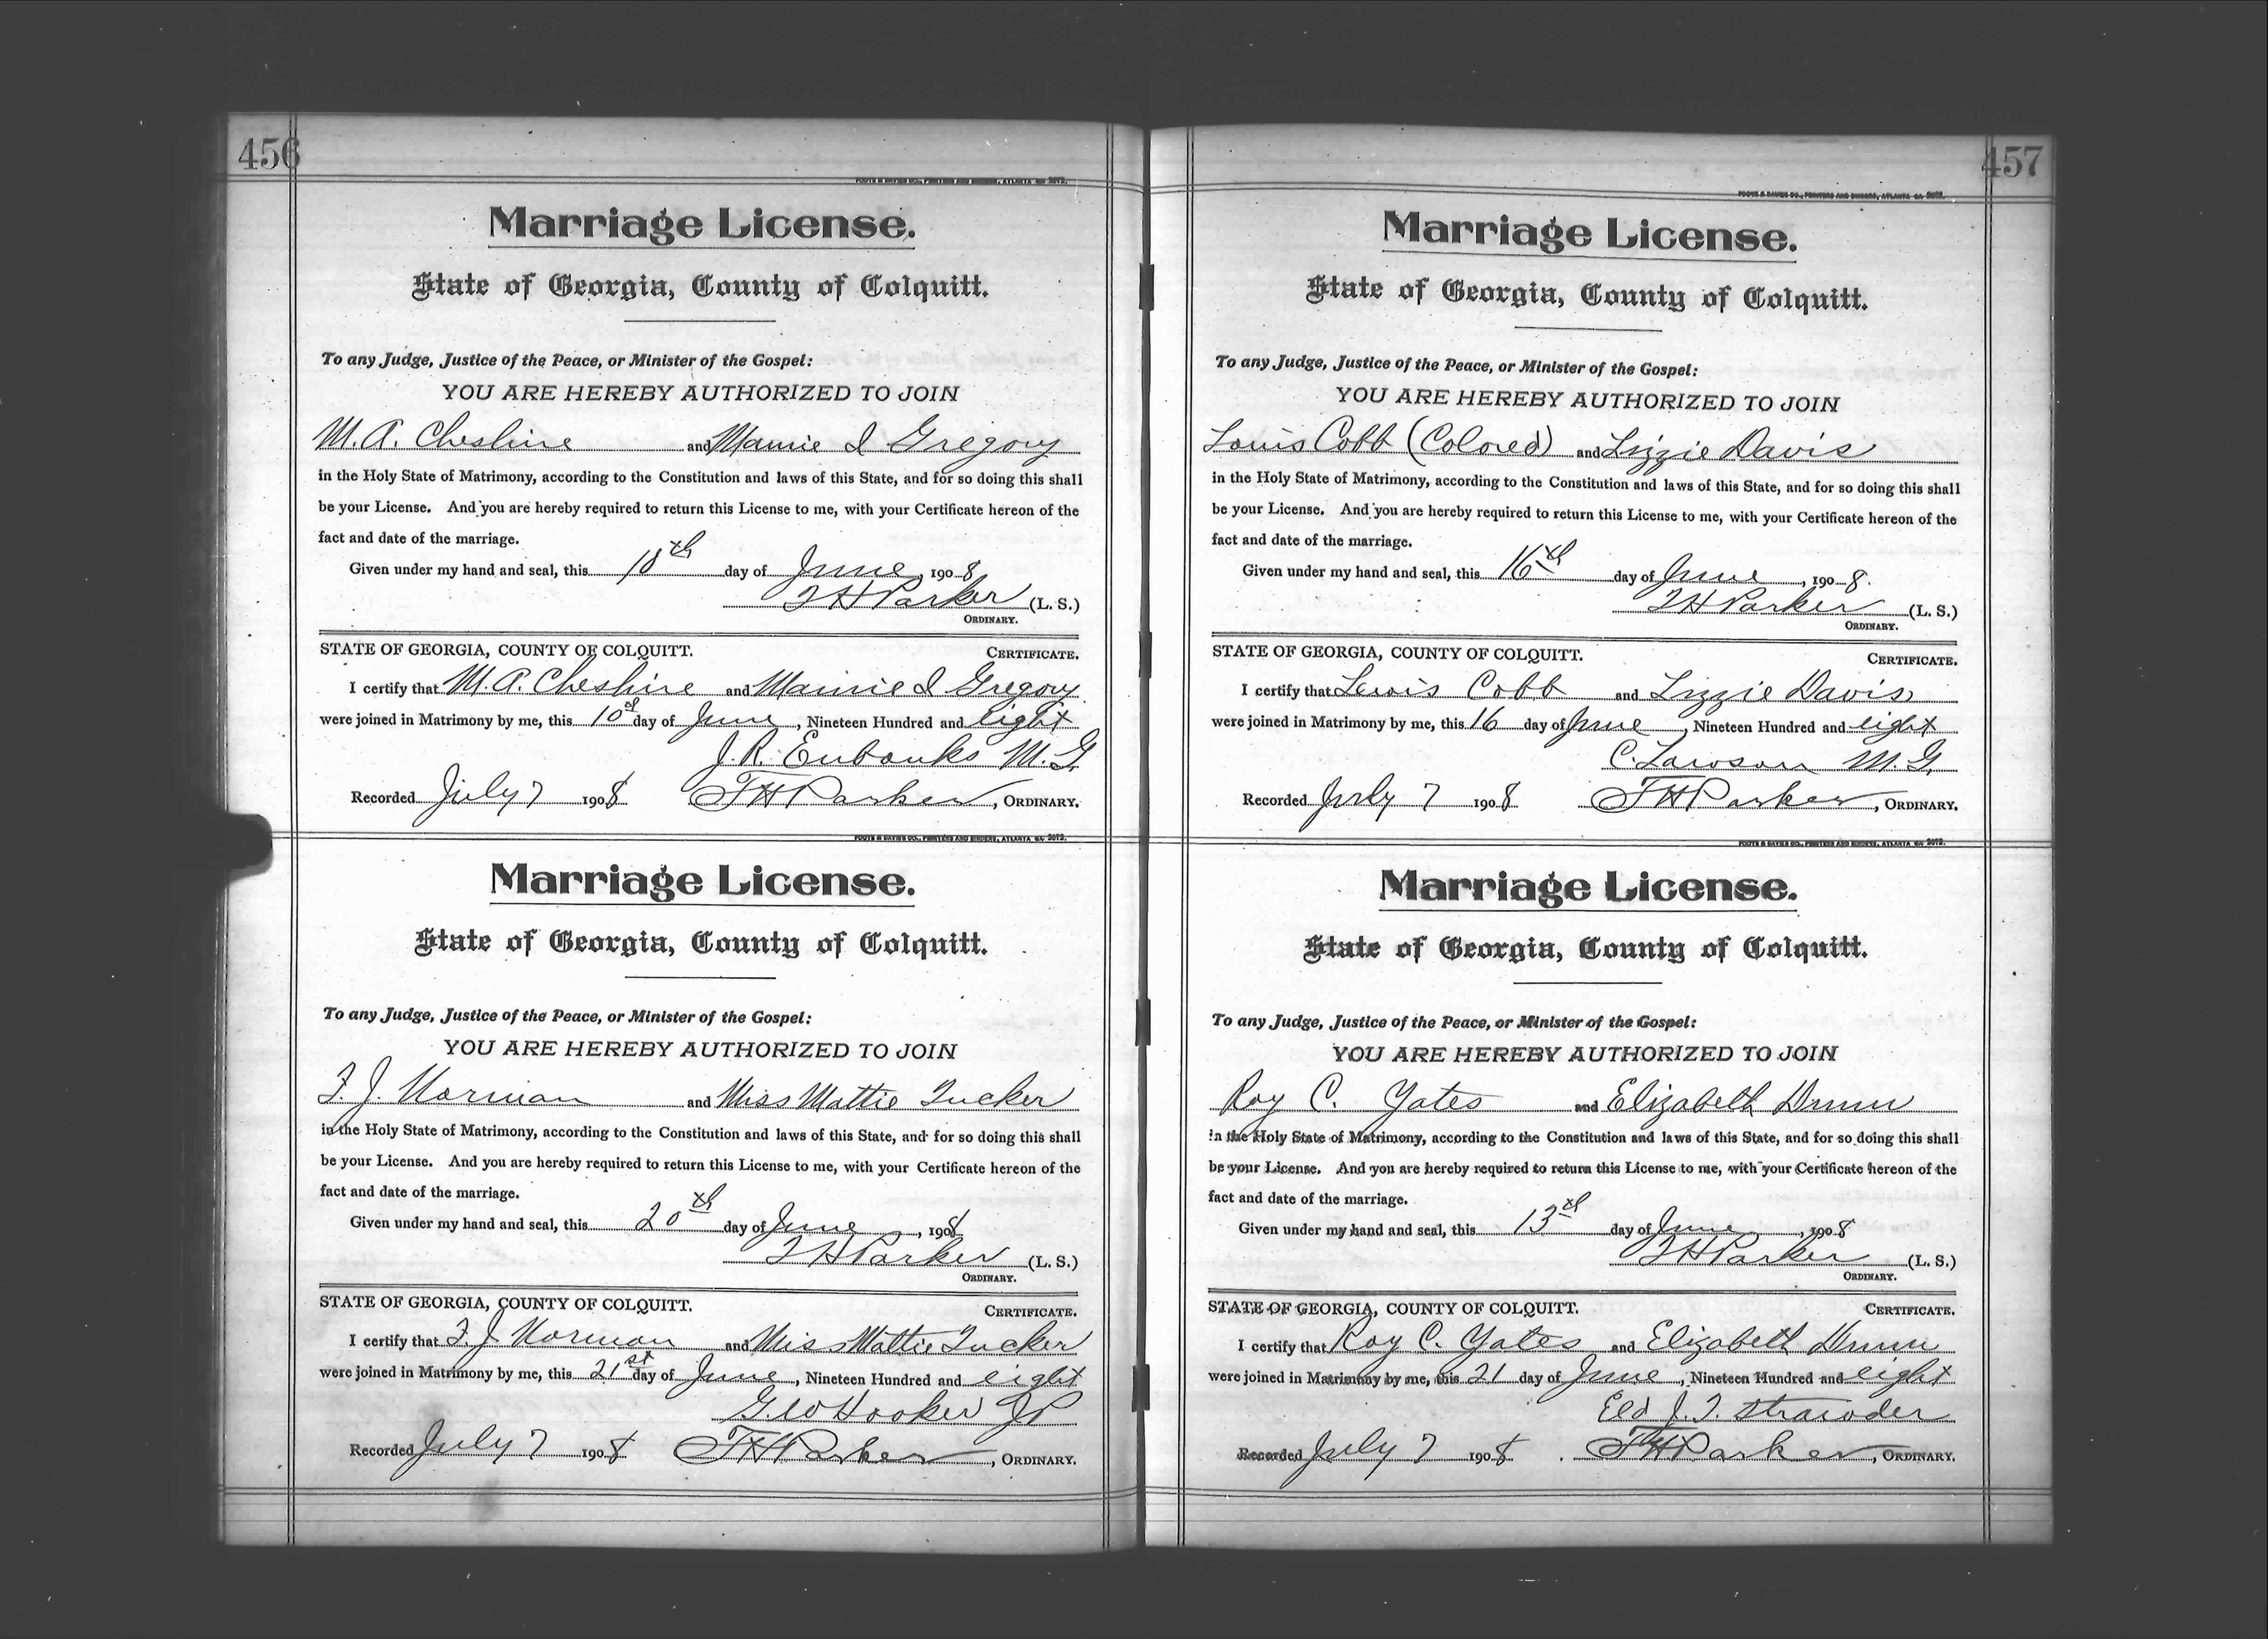 456
FOOTE & DAVIES CO., PRINTERS AND BINDERS, ATLANTA GA 2072.
Marriage License.
State of Georgia, County of Colquitt.
To any Judge, Justice of the Peace, or Minister of the Gospel:
YOU ARE HEREBY AUTHORIZED TO JOIN
M. A. Cheshire and Mamie I Gregory
in the Holy State of Matrimony, according to the Constitution and laws of this State, and for so doing this shall
be your License. And you are hereby required to return this License to me, with your Certificate hereon of the
fact and date of the marriage.
Given under my hand and seal, this 10th day of June, 1908
T H Parker (L. S.)
ORDINARY.
STATE OF GEORGIA, COUNTY OF COLQUITT. CERTIFICATE.
I certify that M. A. Cheshire and Mamie I Gregory
were joined in Matrimony by me, this 10th day of June, Nineteen Hundred and eight
J. R. Eubanks M. G.
Recorded July 7 1908 T H Parker, ORDINARY.
FOOTE & DAVIES CO., PRINTERS AND BINDERS, ATLANTA GA 2072.
Marriage License.
State of Georgia, County of Colquitt.
To any Judge, Justice of the Peace, or Minister of the Gospel:
YOU ARE HEREBY AUTHORIZED TO JOIN
F. J. Norman and Miss Mattie Tucker
in the Holy State of Matrimony, according to the Constitution and laws of this State, and for so doing this shall
be your License. And you are hereby required to return this License to me, with your Certificate hereon of the
fact and date of the marriage.
Given under my hand and seal, this 20th day of June, 1908
T H Parker (L. S.)
ORDINARY.
STATE OF GEORGIA, COUNTY OF COLQUITT. CERTIFICATE.
I certify that F. J Norman and Miss Mattie Tucker
were joined in Matrimony by me, this 21st day of June, Nineteen Hundred and eight
G. W Hooker JP
Recorded July 7 1908 T H Parker, ORDINARY.
457
FOOTE & DAVIES CO., PRINTERS AND BINDERS, ATLANTA GA 2072.
Marriage License.
State of Georgia, County of Colquitt.
To any Judge, Justice of the Peace, or Minister of the Gospel:
YOU ARE HEREBY AUTHORIZED TO JOIN
Louis Cobb (Colored) and Lizzie Davis
in the Holy State of Matrimony, according to the Constitution and laws of this State, and for so doing this shall
be your License. And you are hereby required to return this License to me, with your Certificate hereon of the
fact and date of the marriage.
Given under my hand and seal, this 16th day of June, 1908.
T H Parker (L. S.)
ORDINARY.
STATE OF GEORGIA, COUNTY OF COLQUITT. CERTIFICATE.
I certify that Lewis Cobb and Lizzie Davis
were joined in Matrimony by me, this 16 day of June, Nineteen Hundred and eight
C. Lawson M. G.
Recorded July 7 1908 T H Parker, ORDINARY.
FOOTE & DAVIES CO., PRINTERS AND BINDERS, ATLANTA GA 2072.
Marriage License.
State of Georgia, County of Colquitt.
To any Judge, Justice of the Peace, or Minister of the Gospel:
YOU ARE HEREBY AUTHORIZED TO JOIN
Roy C. Yates and Elizabeth Drum
in the Holy State of Matrimony, according to the Constitution and laws of this State, and for so doing this shall
be your License. And you are hereby required to return this License to me, with your Certificate hereon of the
fact and date of the marriage.
Given under my hand and seal, this 13th day of June, 1908
T H Parker (L. S.)
ORDINARY.
STATE OF GEORGIA, COUNTY OF COLQUITT. CERTIFICATE.
I certify that Roy C. Yates and Elizabeth Drum
were joined in Matrimony by me, this 21 day of June, Nineteen Hundred and eight
Eld J. T. Strawder
Recorded July 7 1908 T H Parker, ORDINARY.